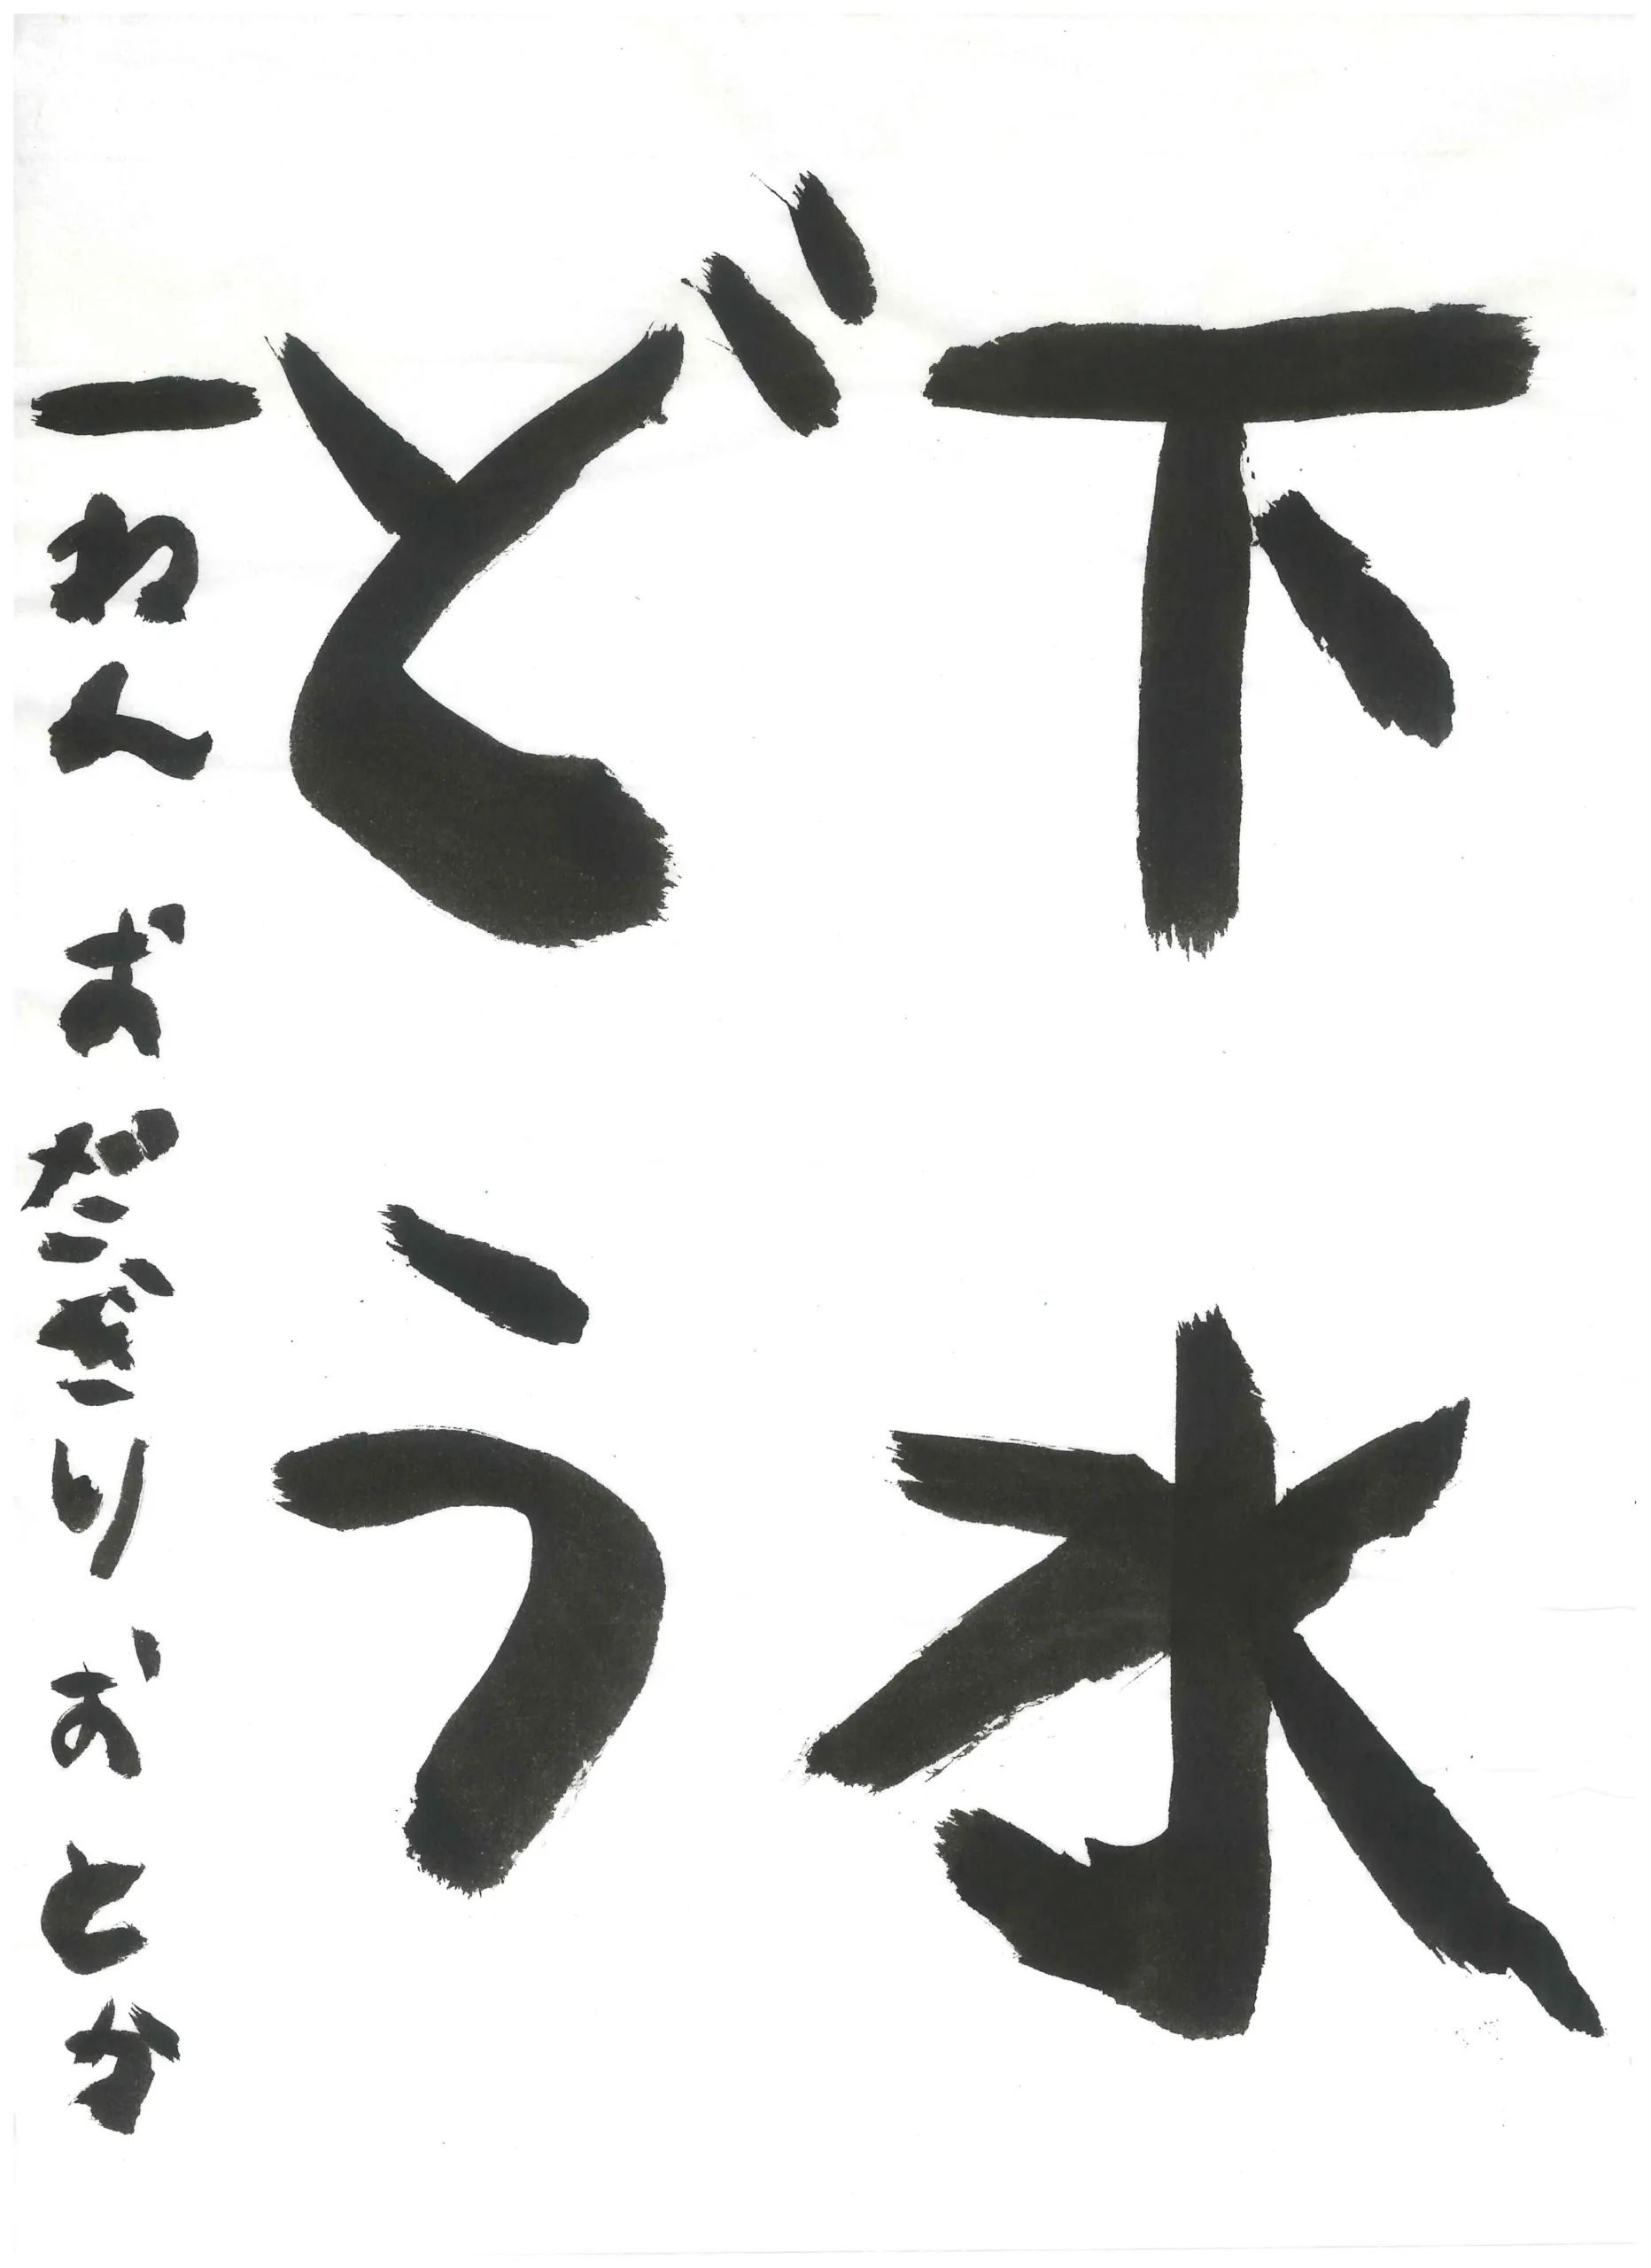 下水
どう
一ねん おだぎりおとか